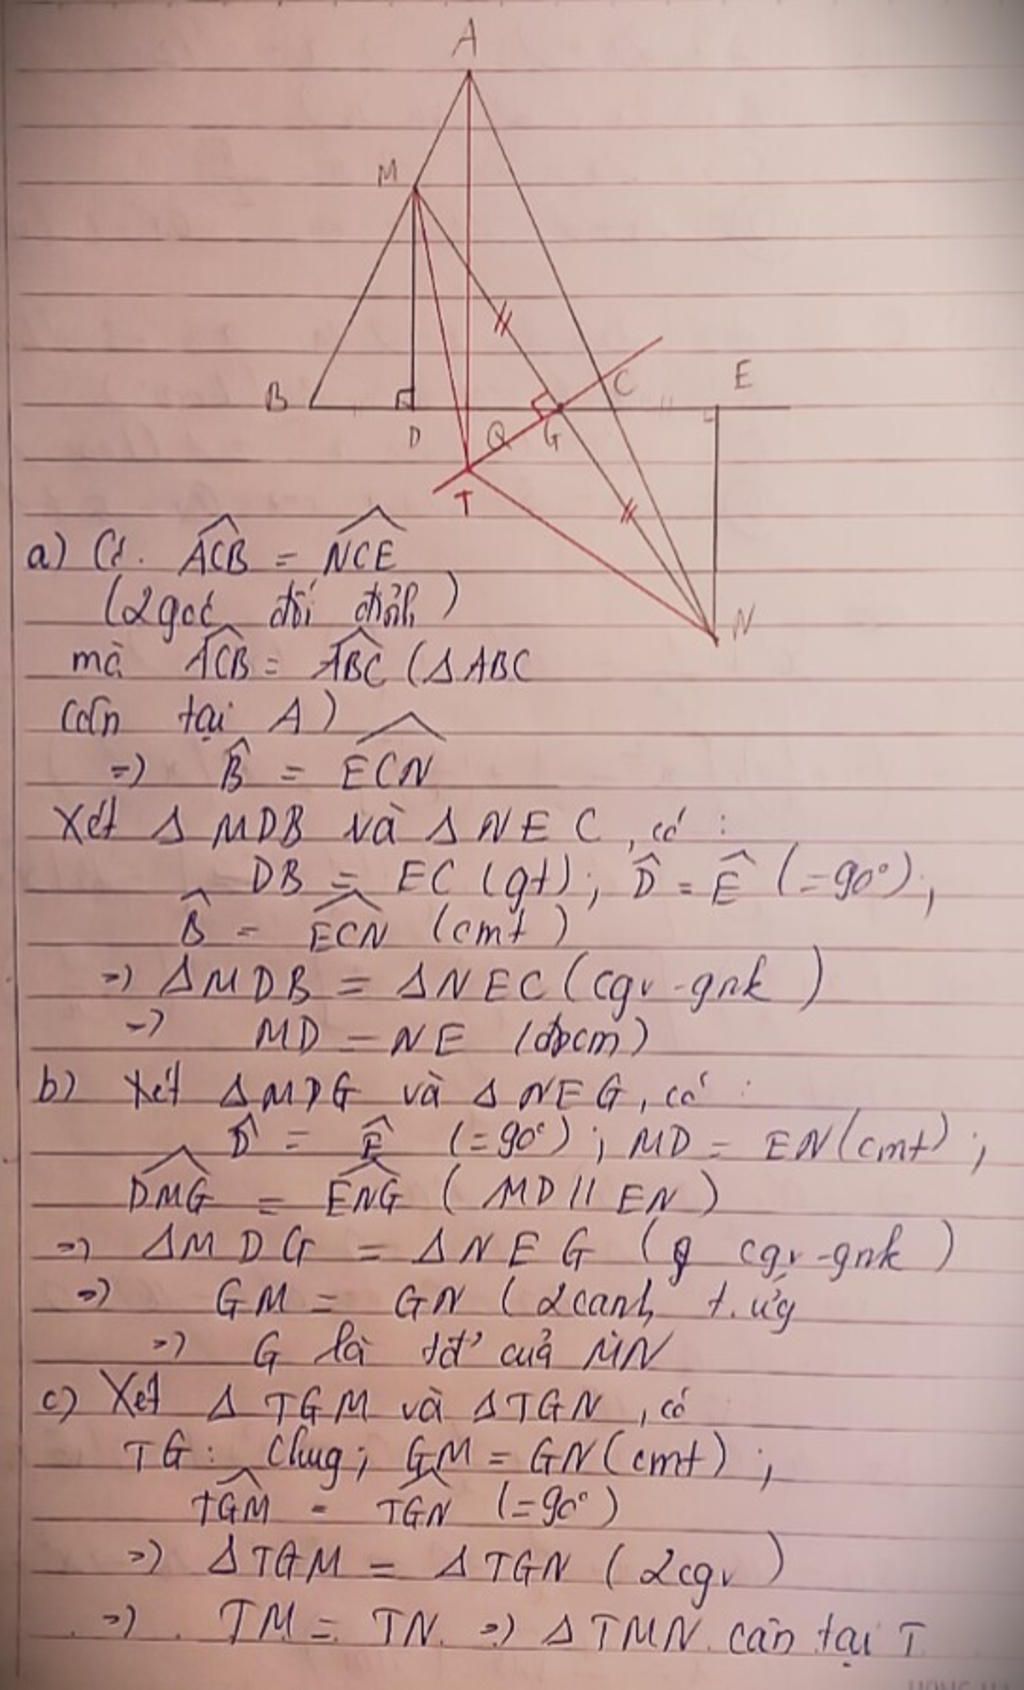 A
M
B
D
Q
G
C
E
T
N
a) Có. ACB = NCE
(2 góc đối đỉnh)
mà ACB = ABC (Δ ABC
cân tại A)
=> B = ECN
Xét Δ MDB và Δ NEC, có :
DB = EC (gt); D = E (=90°),
B = ECN (cmt)
=> ΔMDB = ΔNEC (cgv-gnk)
=> MD = NE (đpcm)
b) Xét ΔMDG và Δ NEG, có :
D = E (=90°); MD = EN (cmt);
DMG = ENG (MD // EN)
=> ΔMDG = ΔNEG (cgv-gnk)
=> GM = GN (2 cạnh t.ứg
=> G là tđ' của MN
c) Xét Δ TGM và ΔTGN, có
TG: Chug; GM = GN (cmt);
TGM = TGN (=90°)
=> ΔTGM = ΔTGN (2cgv)
=> TM = TN => ΔTMN cân tại T